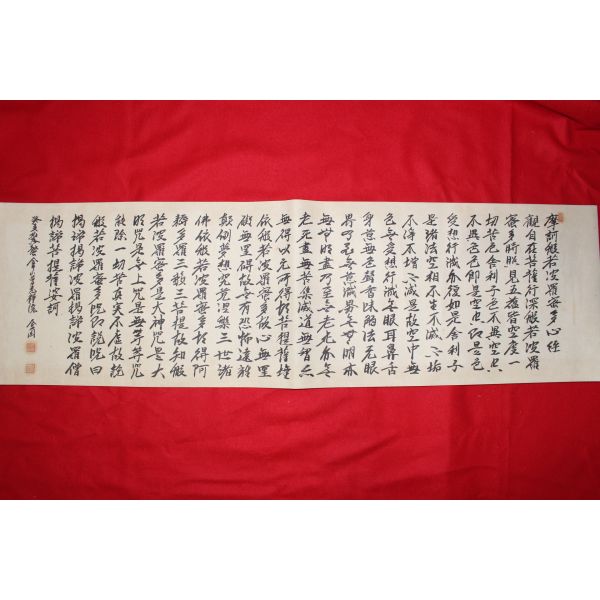 摩訶般若波羅蜜多心経
觀自在菩薩行深般若波羅
蜜多時照見五蘊皆空度一
切苦厄舍利子色不異空空
不異色色即是空空即是色
受想行識亦復如是舍利子
是諸法空相不生不滅不垢
不淨不增不減是故空中無
色無受想行識無眼耳鼻舌
身意無色聲香味觸法无眼
界乃至無意識界無無明亦
無無明盡乃至無老死亦無
老死盡無苦集滅道無智亦
無得以无所得故菩提薩埵
依般若波羅蜜多故心無罣
礙無罣礙故無有恐怖遠離
顛倒夢想究竟涅槃三世諸
佛依般若波羅蜜多故得阿
耨多羅三藐三菩提故知般
若波羅蜜多是大神咒是大
明咒是無上咒是無等等咒
能除一切苦真実不虛故說
般若波羅蜜多咒即說咒曰
揭諦揭諦波羅揭諦波羅僧
揭諦菩提薩婆訶